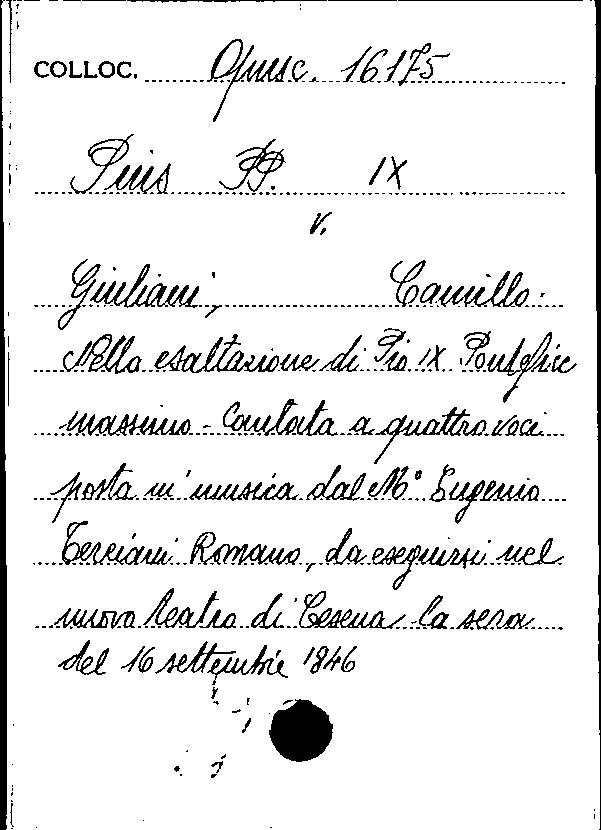 COLLOC. Opusc. 16175
Pius PP. IX
v.
Giuliani, Camillo.
Nella esaltazione di Pio IX Pontefice
massimo - Cantata a quattro voci
posta in musica dal M° Eugenio
Terziani Romano, da eseguirsi nel
nuovo teatro di Cesena la sera
del 16 settembre 1846